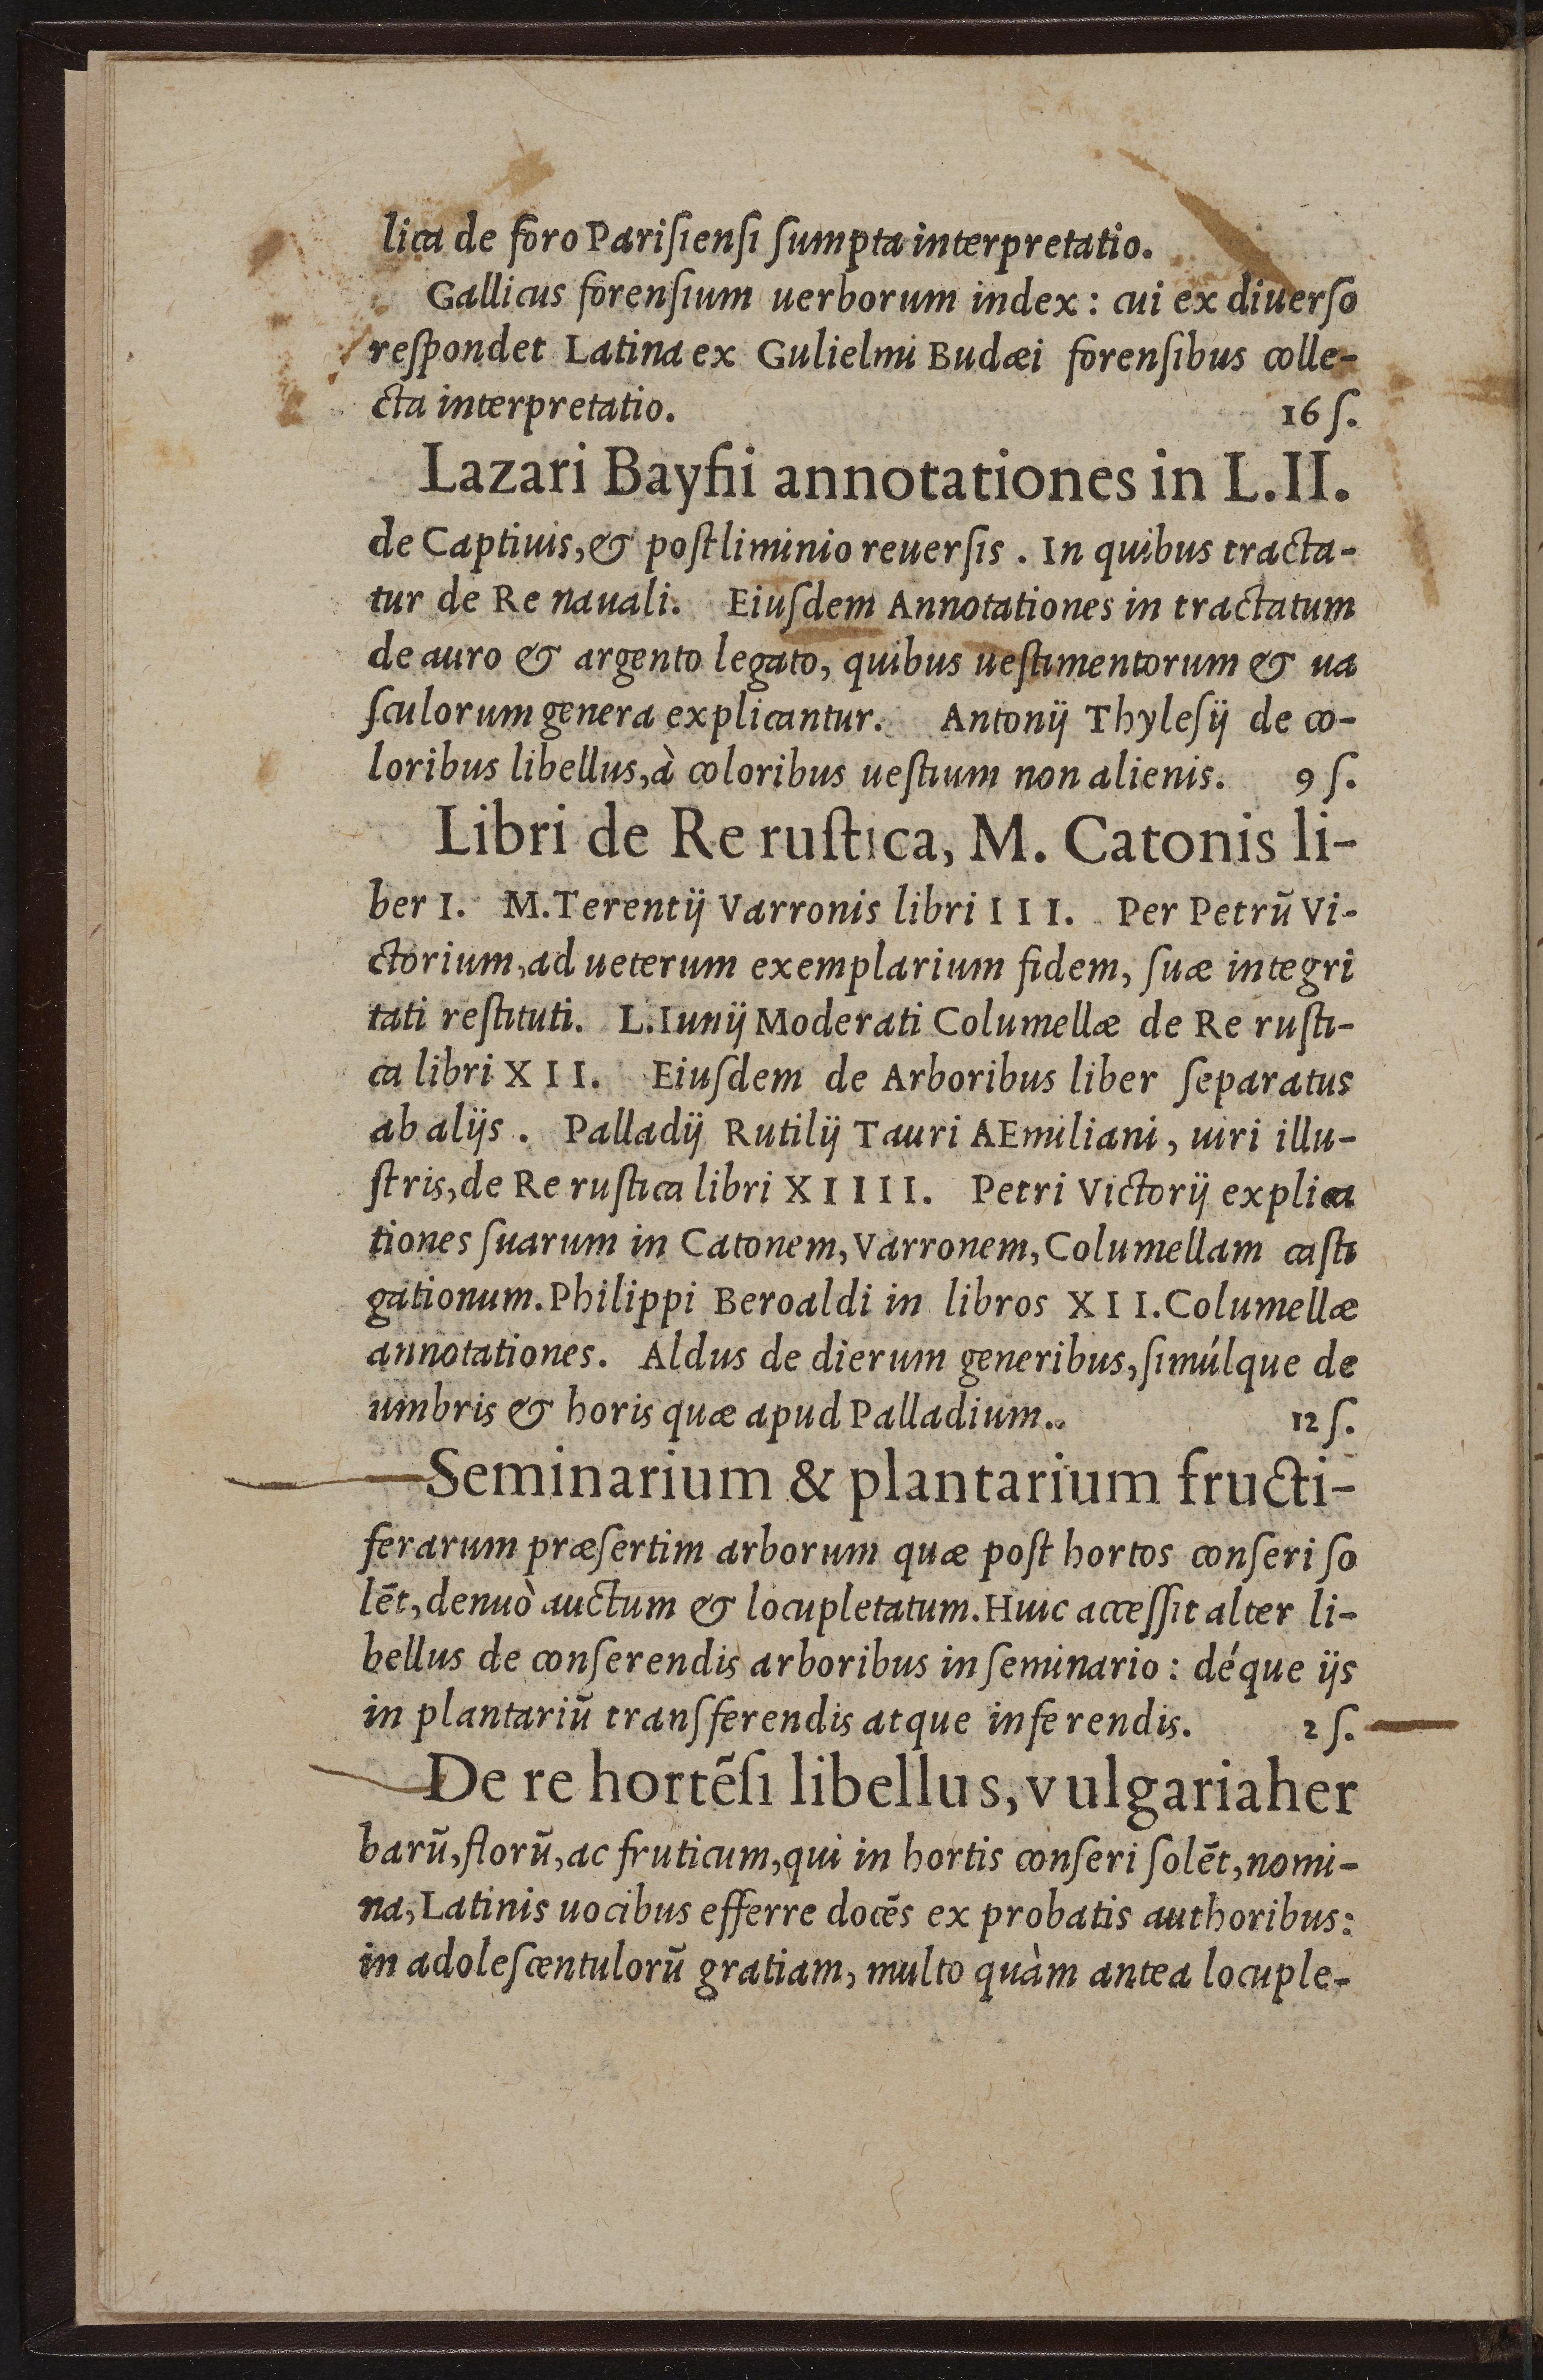 lica de foro Pariſienſi ſumpta interpretatio.
Gallicus forenſium uerborum index : cui ex diuerſo
reſpondet Latina ex Gulielmi Budæi forenſibus colle-
cta interpretatio. 16 ſ.
Lazari Bayfii annotationes in L.II.
de Captiuis, & poſtliminio reuerſis . In quibus tracta-
tur de Re nauali. Eiuſdem Annotationes in tractatum
de auro & argento legato, quibus ueſtimentorum & ua
ſculorum genera explicantur. Antonij Thyleſij de co-
loribus libellus, à coloribus ueſtium non alienis. 9 ſ.
Libri de Re ruſtica, M. Catonis li-
ber I. M. Terentij Varronis libri III. Per Petrū Vi-
ctorium, ad ueterum exemplarium fidem, ſuæ integri
tati reſtituti. L. Iunij Moderati Columellæ de Re ruſti-
ca libri XII. Eiuſdem de Arboribus liber ſeparatus
ab alijs . Palladij Rutilij Tauri AEmiliani, uiri illu-
ſtris, de Re ruſtica libri XIIII. Petri Victorij explica
tiones ſuarum in Catonem, Varronem, Columellam caſti
gationum. Philippi Beroaldi in libros XII. Columellæ
annotationes. Aldus de dierum generibus, ſimúlque de
umbris & horis quæ apud Palladium.. 12 ſ.
Seminarium & plantarium fructi-
ferarum præſertim arborum quæ poſt hortos conſeri ſo
lēt, denuò auctum & locupletatum. Huic acceſſit alter li-
bellus de conſerendis arboribus in ſeminario : déque ijs
in plantariū tranſferendis atque inferendis. 2 ſ.
De re hortēſi libellus, vulgaria her
barū, florū, ac fruticum, qui in hortis conſeri ſolēt, nomi-
na, Latinis uocibus efferre docēs ex probatis authoribus:
in adoleſcentulorū gratiam, multo quàm antea locuple-